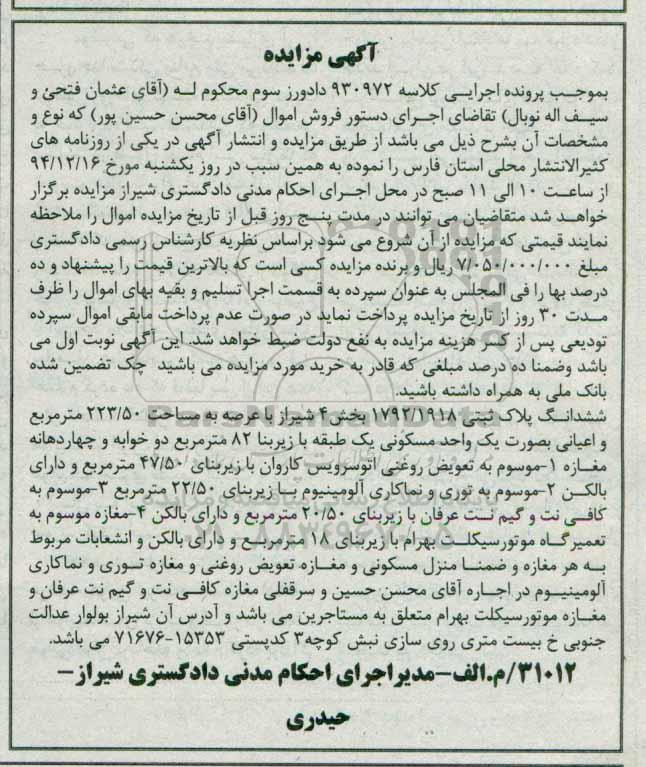 آگهی مزایده
بموجب پرونده اجرایی کلاسه ۹۳۰۹۷۲ دادورز سوم محکوم له (آقای عثمان فتحی و
سیف اله نوبال) تقاضای اجرای دستور فروش اموال (آقای محسن حسین پور) که نوع و
مشخصات آن بشرح ذیل می باشد از طریق مزایده و انتشار آگهی در یکی از روزنامه های
کثیرالانتشار محلی استان فارس را نموده به همین سبب در روز یکشنبه مورخ ۹۴/۱۲/۱۶
از ساعت ۱۰ الی ۱۱ صبح در محل اجرای احکام مدنی دادگستری شیراز مزایده برگزار
خواهد شد متقاضیان می توانند در مدت پنج روز قبل از تاریخ مزایده اموال را ملاحظه
نمایند قیمتی که مزایده از آن شروع می شود براساس نظریه کارشناس رسمی دادگستری
مبلغ ۷/۰۵۰/۰۰۰/۰۰۰ ریال و برنده مزایده کسی است که بالاترین قیمت را پیشنهاد و ده
درصد بها را فی المجلس به عنوان سپرده به قسمت اجرا تسلیم و بقیه بهای اموال را ظرف
مدت ۳۰ روز از تاریخ مزایده پرداخت نماید در صورت عدم پرداخت مابقی اموال سپرده
تودیعی پس از کسر هزینه مزایده به نفع دولت ضبط خواهد شد. این آگهی نوبت اول می
باشد وضمنا ده درصد مبلغی که قادر به خرید مورد مزایده می باشید چک تضمین شده
بانک ملی به همراه داشته باشید.
ششدانگ پلاک ثبتی ۱۷۹۲/۱۹۱۸ بخش ۴ شیراز با عرصه به مساحت ۲۲۳/۵۰ مترمربع
و اعیانی بصورت یک واحد مسکونی یک طبقه با زیربنا ۸۲ مترمربع دو خوابه و چهاردهانه
مغازه ۱-موسوم به تعویض روغنی اتوسرویس کاروان با زیربنای ۴۷/۵۰ مترمربع و دارای
بالکن ۲-موسوم به توری و نماکاری آلومینیوم با زیربنای ۲۲/۵۰ مترمربع ۳-موسوم به
کافی نت و گیم نت عرفان با زیربنای ۲۰/۵۰ مترمربع و دارای بالکن ۴-مغازه موسوم به
تعمیرگاه موتورسیکلت بهرام با زیربنای ۱۸ مترمربع و دارای بالکن و انشعابات مربوط
به هر مغازه و ضمنا منزل مسکونی و مغازه تعویض روغنی و مغازه توری و نماکاری
آلومینیوم در اجاره آقای محسن حسین و سرقفلی مغازه کافی نت و گیم نت عرفان و
مغازه موتورسیکلت بهرام متعلق به مستاجرین می باشد و آدرس آن شیراز بولوار عدالت
جنوبی خ بیست متری روی سازی نبش کوچه۳ کدپستی ۱۵۳۵۳-۷۱۶۷۶ می باشد.
۳۱۰۱۲/م.الف-مدیراجرای احکام مدنی دادگستری شیراز-
حیدری
ParsNamadData